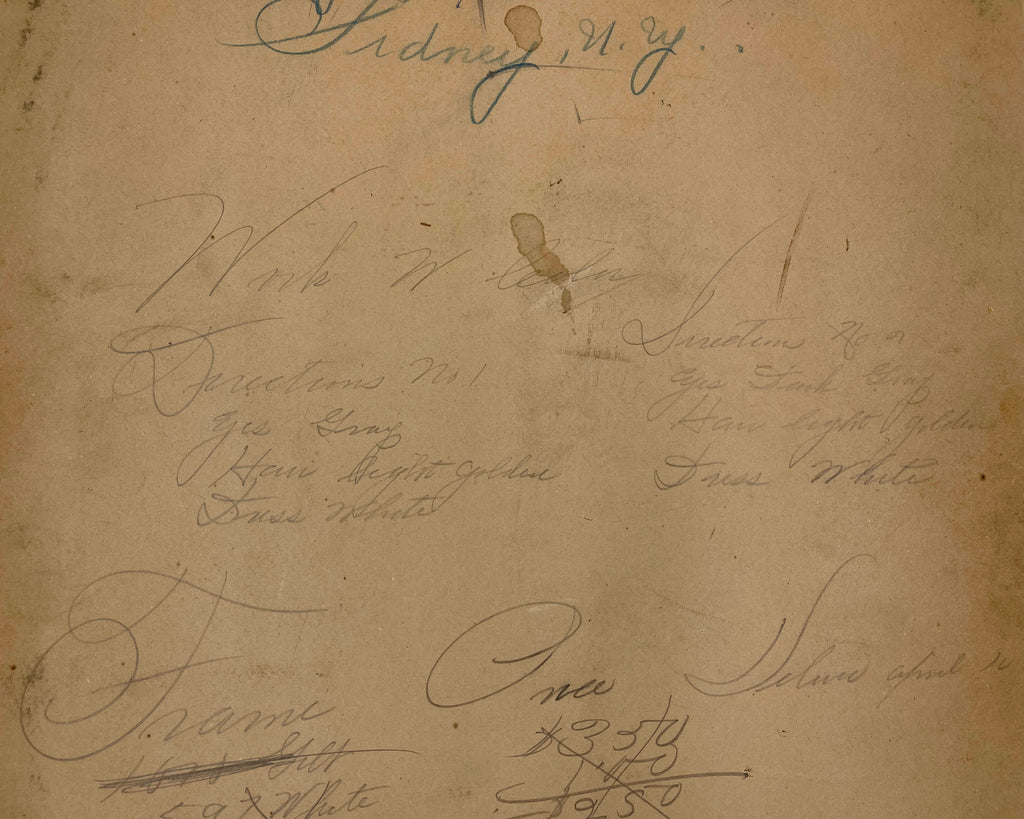 Sidney, N. Y.
Work W
Directions No 1
Yes Gray
Hair light golden
Dress White
Direction No 2
Yes Dark Gray
Hair light golden
Dress White
Frame
Gilt
White
Price
$3 50
1 00
$2 50
Deliver april